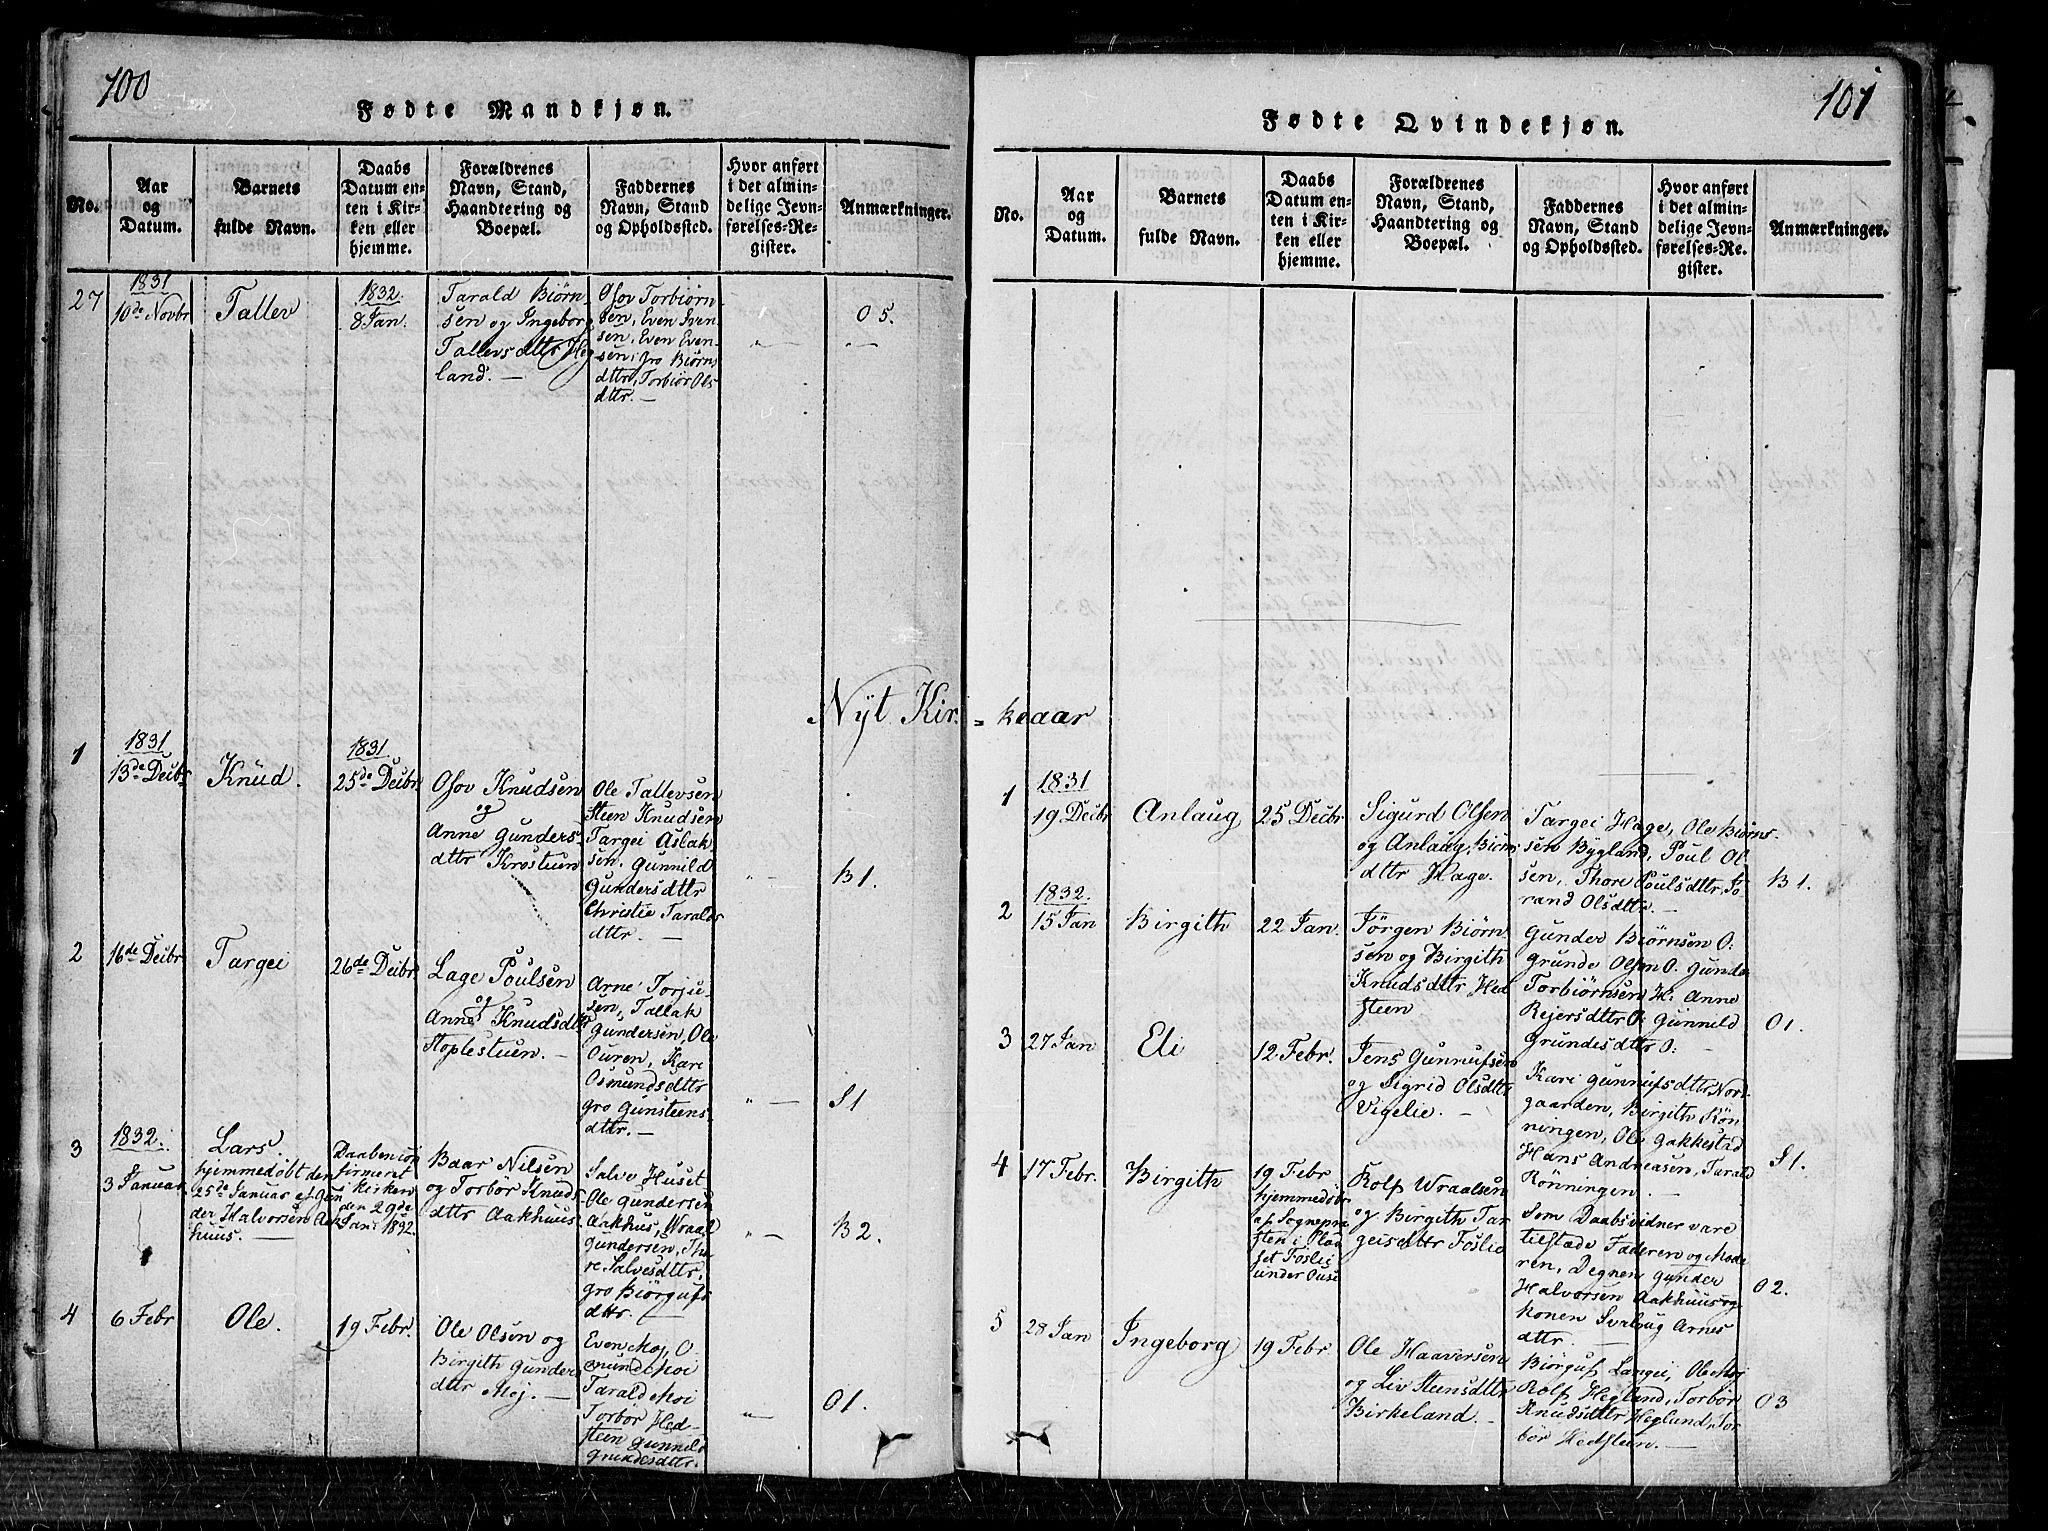 100
Fødte Mandkjøn.
No.
Aar
og
Datum.
Barnets
fulde Navn.
Daabs
Datum en-
ten i Kir-
ken eller
hjemme.
Forældrenes
Navn, Stand,
Haandtering og
Boepæl.
Faddernes
Navn, Stand
og Opholdssted.
Hvor anført
i det almin-
delige Jevn-
førelses-Re-
gister.
Anmærkninger.
27
1831
10de Novbr
Tallev
1832.
8 Jan.
Tarald Biørn-
sen og Ingeborg
Tallevsdttr Heg
land. —
Osov Torbiørn-
sen, Even Sven
sen, Even Even-
sen, Gro Biørns
dttr, Torbiør Ols
dttr. —
O 5.
Nyt Kir-
1
1831
13de Decbr
Knud.
1831.
25de Decbr.
Osov Knudsen
og
Anne Gunders-
dttr Krostuen
Ole Tallevsen
Steen Knudsen
Targei Aslak
sen. Gunnild
Gundersdttr
Christie Taralds
dttr. —
B 1.
2
16de Decbr
Targei
26de Decbr
Lage Poulsen
og
Anne Knudsdttr
Stoplestuen. —
Arne Torju-
sen, Tallak
Gundersen, Ole
Ouren, Kare
Osmundsdttr
Gro Gunsteens-
dttr. —
S 1
3
1832.
3 Januar.
Lars.
hjemmedøbt den
25de Januar af Gun
der Halvorsen Aak
huus. —
Daaben con
firmeret
i Kirken
den 29de
Jani 1832.
Baar Nilsen
og Torbør Knuds
dttr Aakhuus
Salve Huset
Ole Gundersen
Aakhus, Wraal
Gundersen, Tho
re Salvesdttr,
Gro Biørgufs
dttr. —
B 2.
4
6 Febr
Ole.
19 Febr.
Ole Olsen og
Birgith Gunders
dttr Moj. —
Even Moj, O-
smund Moi
Tarald Moi
Torbør Hed-
steen Gunnild
Grundesdttr.
O 1.
101
Fødte Qvindekjøn.
No.
Aar
og
Datum.
Barnets
fulde Navn.
Daabs
Datum en-
ten i Kir-
ken eller
hjemme.
Forældrenes
Navn, Stand,
Haandtering og
Boepæl.
Faddernes
Navn, Stand
og Opholdssted.
Hvor anført
i det almin-
delige Jevn-
førelses-Re-
gister.
Anmærkninger.
keaar
1
1831
19 Decbr
Anlaug
25 Decbr
Sigurd Olsen
og Anlaug Biørns
dttr Hage.
Targei Hage, Ole Biørns-
sen Bygland, Poul Ol
sen, Thore Poulsdttr, To
rand Olsdttr. —
B 1.
2
1832.
15 Jan
Birgith
22 Jan.
Jørgen Biørn
sen og Birgith
Knudsdttr Hed
steen
Gunder Biørnsen O.
Grunde Olsen O. Gunder
Torbiørnsen H. Anne
Rejersdttr O: Gunnild
Grundesdttr O: —
O 1.
3
27 Jan
Eli
12 Febr.
Jens Gunnufsen
og Sigrid Olsdttr
Vigelie. —
Kari Gunnufsdttr Nor-
gaarden, Birgith Røn
ningen, Ole Gakkestid
Hans Andreasen, Tarald
Rønningen. —
S 1.
4
17 Febr.
Birgith
19 Febr
hjemmedøbt
af Sognepræ
sten i Plad
set Foslie
under Ouse
Rolf Wraalsen
og Birgith Tar
geisdttr Foslie
Som Daabsvidner vare
tilstæde Faderen og Mode
ren, Degnen Gunder
Halvorsen Aakhuus og
Konen Svalaug Arnes
dttr. —
O 2.
5
28 Jan
Ingeborg
19 Febr
Ole Haaversen
og Liv Steensdttr
Birkeland. —
Biørguf Langei, Ole Moj
Rolf Hegland, Torbør
Knudsdttr Heglund, Tor
bør Hedsteen. —
O 3